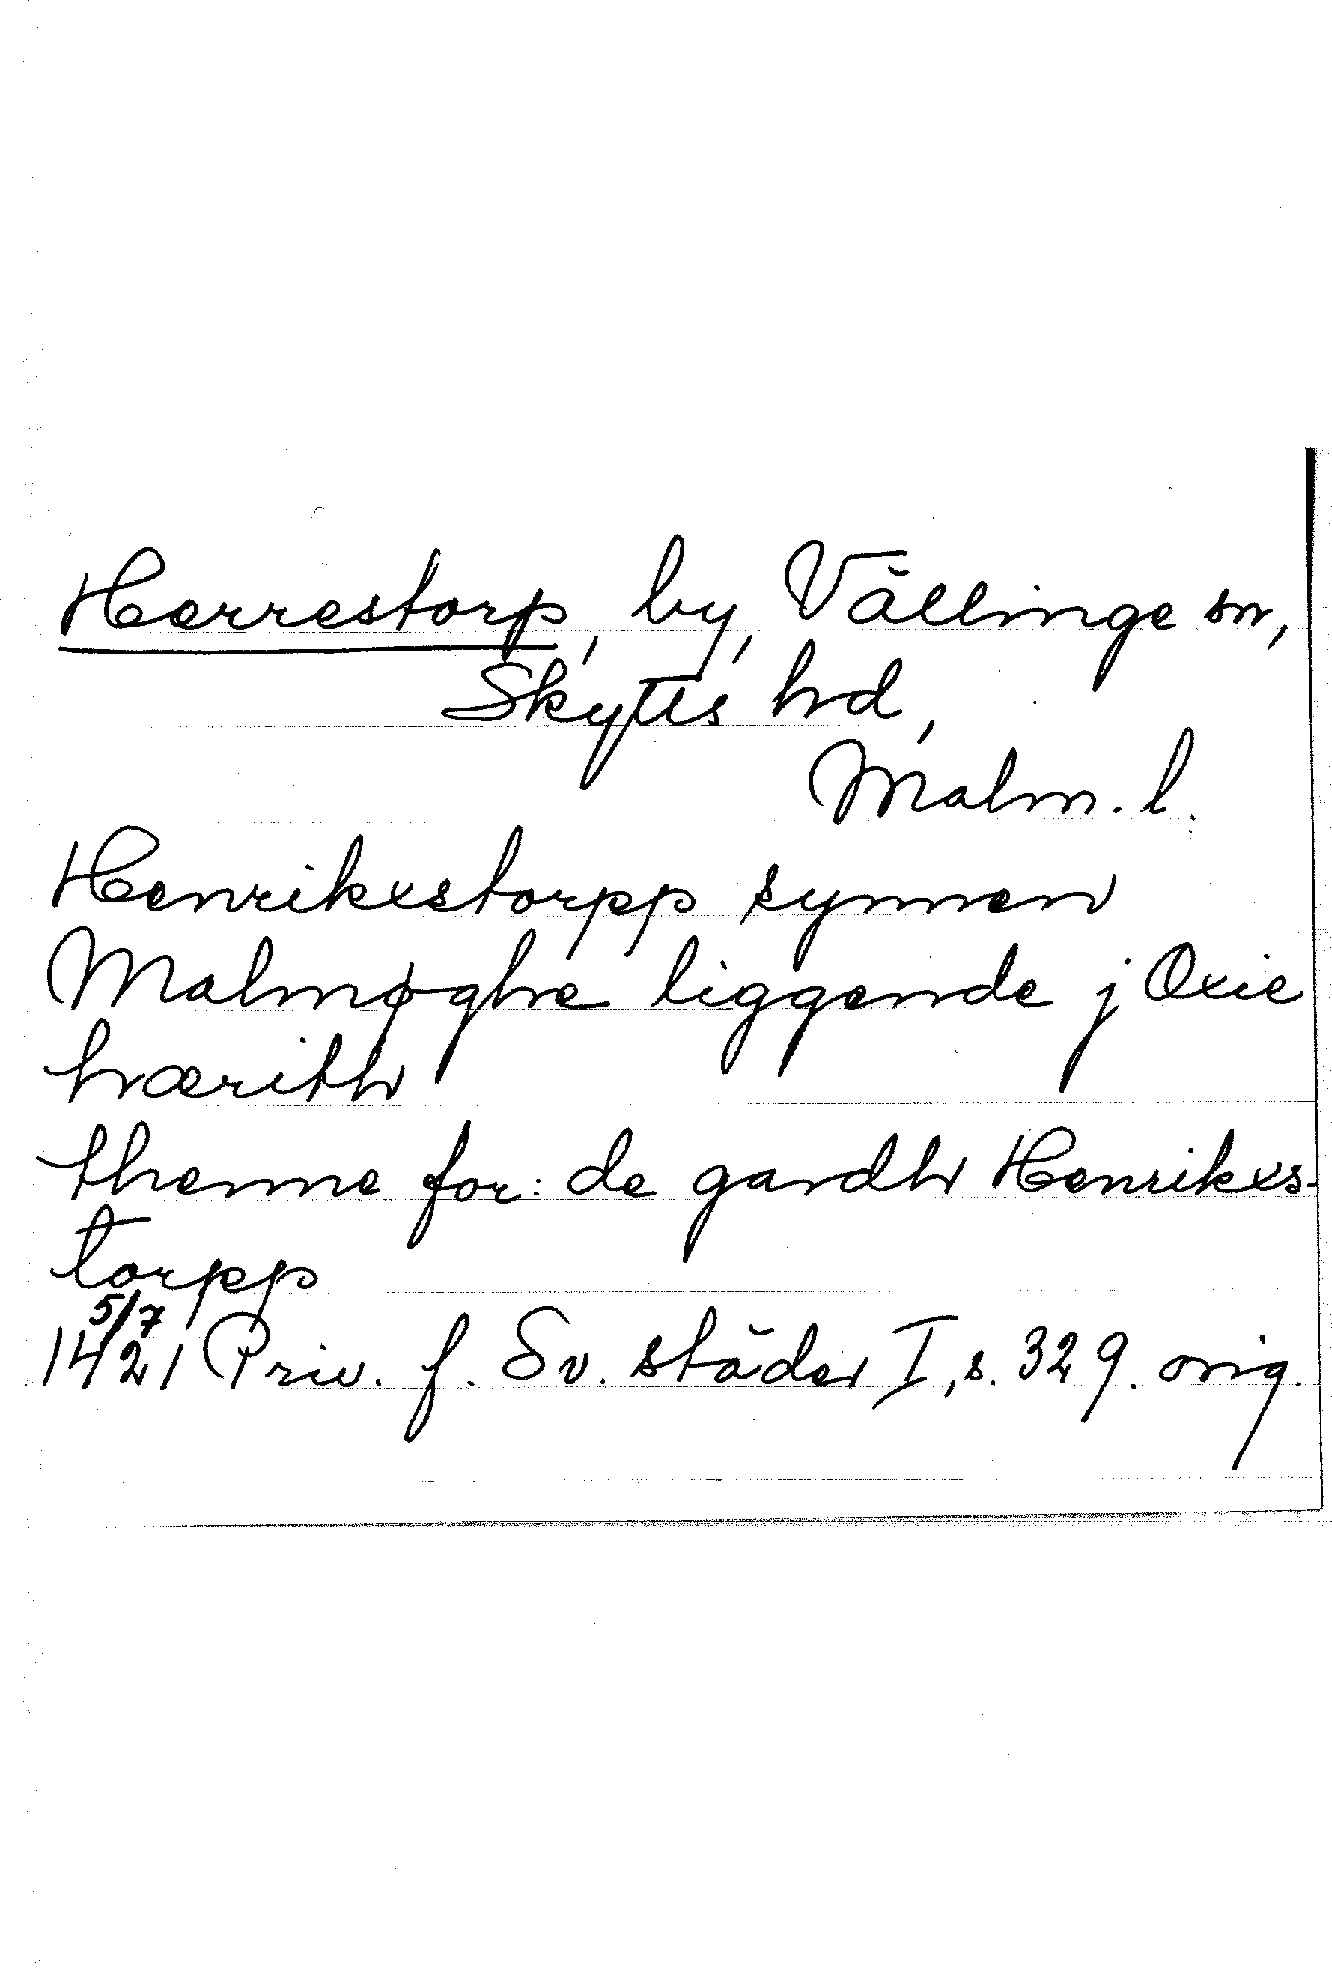 Herrestorp, by, Vällinge sn,
Skytts hd,
Malm. l.
Henrikxstorpp synnen
Malmøghe liggende j Oxie
hærith
thenne for: de gardh Henrikxs-
torpp
5/7
1421 Priv. f. Sv. städer I, s. 329. orig.